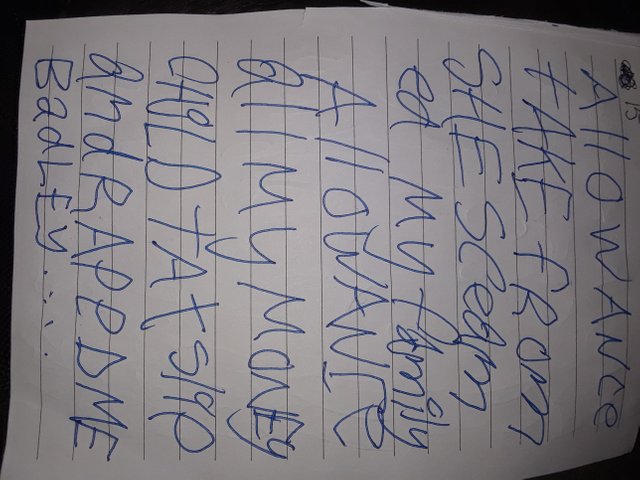 AllOWANCe
tAKE fROm
SHE SCeam
ed My family
AllOWANCe
all My MONEy
CHiLD tAX
andRAPEDME
BadLEy.....